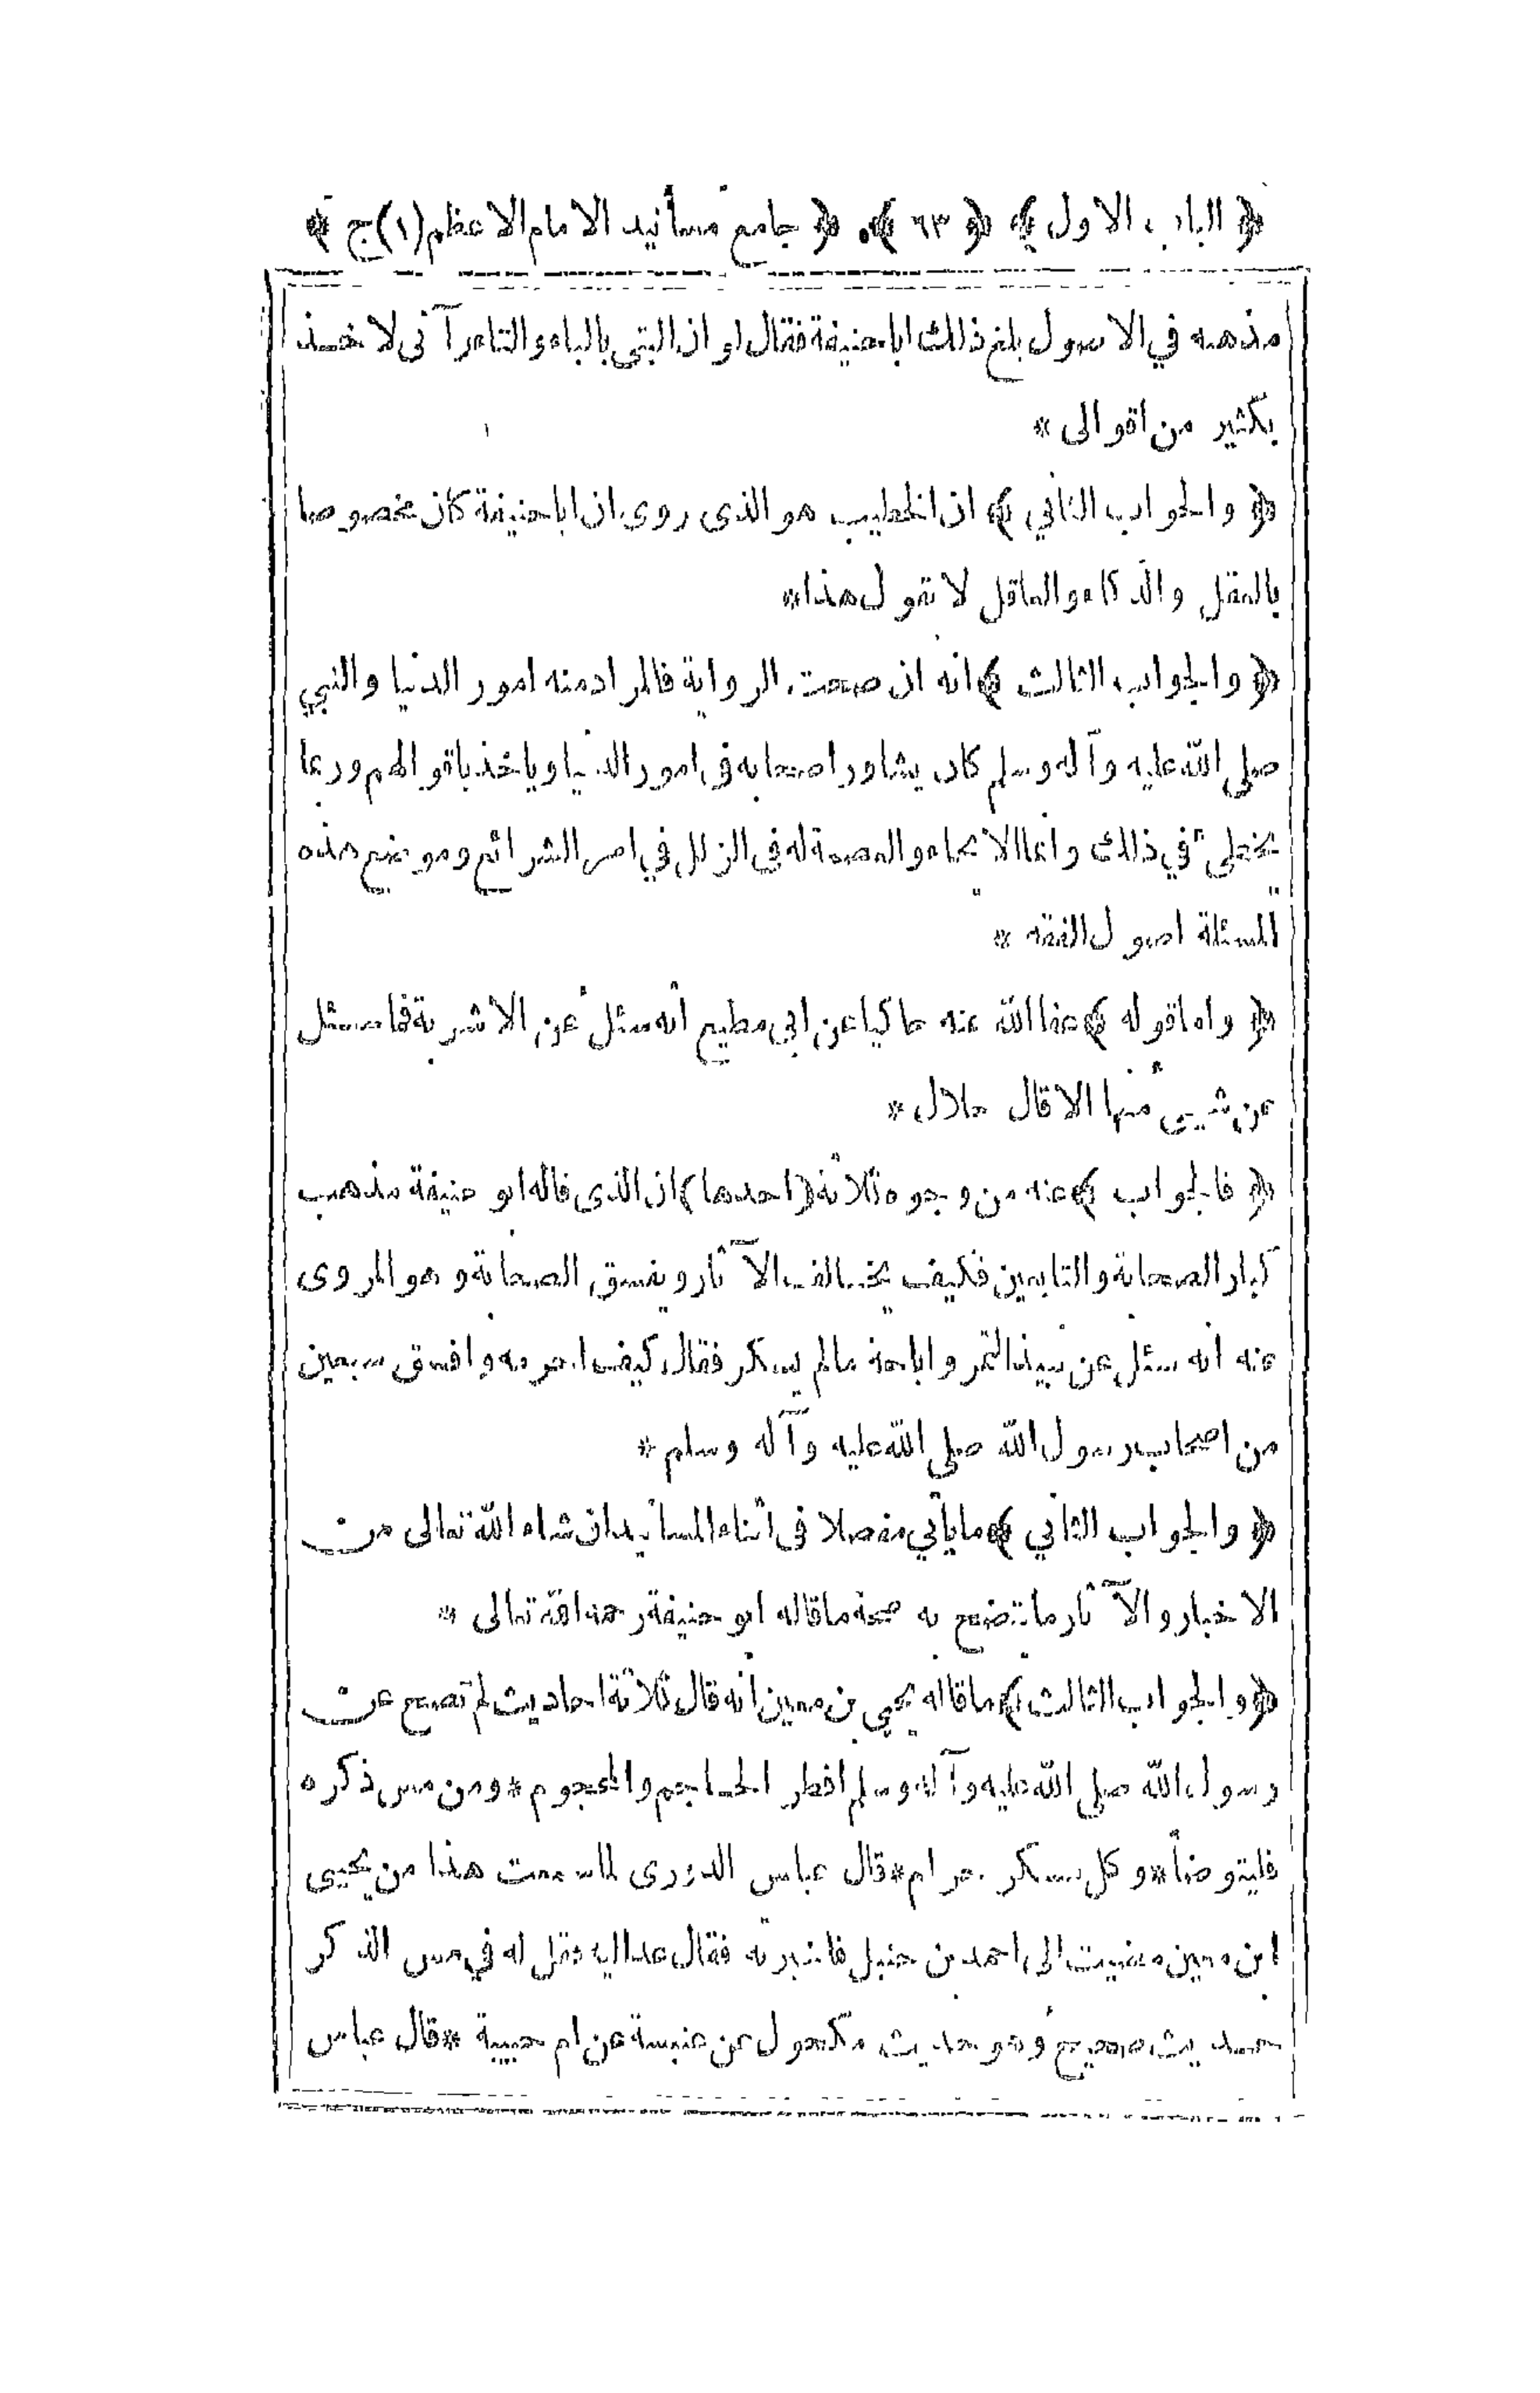 ﴿ الباب الاول ﴾ ﴿ ٦٣ ﴾ ﴿ جامع مسانيد الامام الاعظم (١) ج ﴾
مذهبه في الاصول بلغ ذلك ابا حنيفة فقال لو ان البتى بالباء والتاء رآنى لاخذ
بكثير من اقوالى *
﴿ والجواب الثاني ﴾ ان الخطيب هو الذى روى ان ابا حنيفة كان مخصوصا
بالعقل والذكاء والعاقل لا يقول هذا *
﴿ والجواب الثالث ﴾ انه ان صحت الرواية فالمراد منه امور الدنيا والنبي
صلى الله عليه وآله وسلم كان يشاور اصحابه فى امور الدنيا وياخذ باقوالهم وربما
يخطئ في ذلك وانما الانحاء والعصمة له فى الزلل في امر الشرائع وموضع هذه
المسئلة اصول الفقه *
﴿ واما قوله ﴾ عفا الله عنه حاكيا عن ابى مطيع انه سئل عن الاشربة فما سئل
عن شيئ منها الا قال حلال *
﴿ فالجواب ﴾ عنه من وجوه ثلاثة (احدها) ان الذى قاله ابو حنيفة مذهب
كبار الصحابة والتابعين فكيف يخالف الآثار ويفسق الصحابة وهو المروى
عنه انه سئل عن نبيذ التمر واباحة مالم يسكر فقال كيف احرمه وافسق سبعين
من اصحاب رسول الله صلى الله عليه وآله وسلم *
﴿ والجواب الثاني ﴾ ما يأتي مفصلا فى اثناء المسانيد ان شاء الله تعالى من
الاخبار والآثار ما يتضح به صحة ما قاله ابو حنيفة رحمه الله تعالى *
﴿ والجواب الثالث ﴾ ما قاله يحيي بن معين انه قال ثلاثة احاديث لم تصح عن
رسول الله صلى الله عليه وآله وسلم افطر الحاجم والمحجوم * ومن مس ذكره
فليتوضأ * وكل مسكر حرام * قال عباس الدورى لما سمعت هذا من يحيى
ابن معين مضيت الى احمد بن حنبل فاخبرته فقال عد اليه فقل له في مس الذكر
حديث صحيح وهو حديث مكحول عن عنبسة عن ام حبيبة * قال عباس